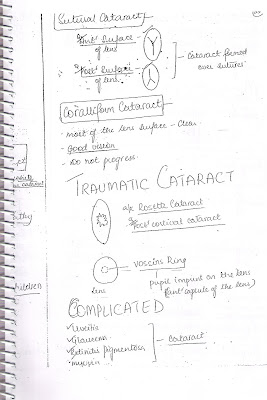 Sutural Cataract
Ant. Surface
of lens
Post. Surface
of lens
Cataract formed
over sutures
Coralliform Cataract
- most of the lens surface - Clear
- Good vision
- Do not progress
TRAUMATIC CATARACT
a/k Rosette Cataract
Post cortical cataract
Voscins Ring
pupil imprint on the lens
(ant capsule of the lens)
Lens
COMPLICATED
Uveitis
Glaucoma
Retinitis Pigmentosa
myopia
Cataract
children